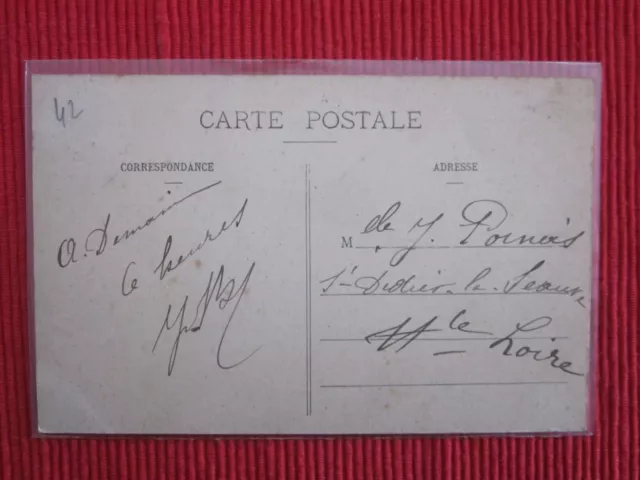 42
CARTE POSTALE
CORRESPONDANCE
A. Demain
6 heures
ADRESSE
M de J.
St Didier-la-Seauve
Hte Loire